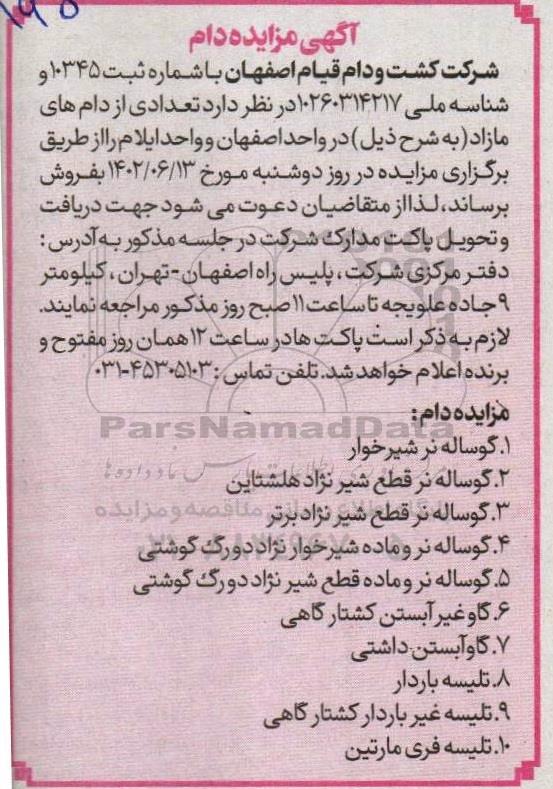 ۱۹۵
آگهی مزایده دام
شرکت کشت و دام قیام اصفهان با شماره ثبت ۱۰۳۴۵ و
شناسه ملی ۱۰۲۶۰۳۱۴۲۱۷ در نظر دارد تعدادی از دام های
مازاد (به شرح ذیل) در واحد اصفهان و واحد ایلام را از طریق
برگزاری مزایده در روز دوشنبه مورخ ۱۴۰۲/۰۶/۱۳ بفروش
برساند، لذا از متقاضیان دعوت می شود جهت دریافت
و تحویل پاکت مدارک شرکت در جلسه مذکور به آدرس :
دفتر مرکزی شرکت ، پلیس راه اصفهان - تهران ، کیلومتر
۹ جاده علویجه تا ساعت ۱۱ صبح روز مذکور مراجعه نمایند.
لازم به ذکر است پاکت ها در ساعت ۱۲ همان روز مفتوح و
برنده اعلام خواهد شد. تلفن تماس : ۴۵۳۰۵۱۰۳-۰۳۱
مزایده دام:
ParsNamadData
۱. گوساله نر شیرخوار
۲. گوساله نر قطع شیر نژاد هلشتاین
۳. گوساله نر قطع شیر نژاد برتر
۴. گوساله نر و ماده شیرخوار نژاد دورگ گوشتی
۵. گوساله نر و ماده قطع شیر نژاد دورگ گوشتی
۶. گاو غیر آبستن کشتارگاهی
۷. گاو آبستن داشتی
۸. تلیسه باردار
۹. تلیسه غیر باردار کشتارگاهی
۱۰. تلیسه فری مارتین